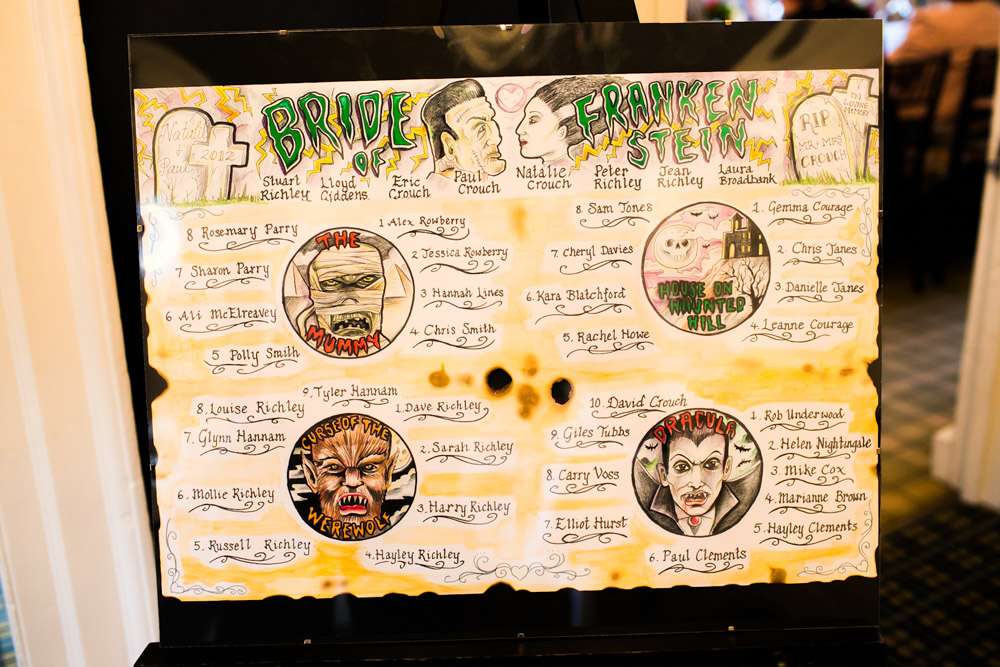 Natalie
+
Paul
2012
BRIDE
OF
FRANKEN
STEIN
RIP
MR+MRS
CROUCH
IN
LOVING
Stuart Richley
Lloyd Giddens
Eric Crouch
Paul Crouch
Natalie Crouch
Peter Richley
Jean Richley
Laura Broadbank
THE
MUMMY
1 Alex Rowberry
2 Jessica Rowberry
3 Hannah Lines
4 Chris Smith
5 Polly Smith
6 Ali McElreavey
7 Sharon Parry
8 Rosemary Parry
HOUSE ON
HAUNTED
HILL
1. Gemma Courage
2. Chris Janes
3. Danielle Janes
4. Leanne Courage
5. Rachel Howe
6. Kara Blatchford
7. Cheryl Davies
8. Sam Jones
CURSE OF THE
WEREWOLF
1. Dave Richley
2. Sarah Richley
3. Harry Richley
4. Hayley Richley
5. Russell Richley
6. Mollie Richley
7. Glynn Hannam
8. Louise Richley
9. Tyler Hannam
DRACULA
1. Rob Underwood
2. Helen Nightingale
3. Mike Cox
4. Marianne Brown
5. Hayley Clements
6. Paul Clements
7. Elliot Hurst
8. Carry Voss
9. Giles Tubbs
10. David Crouch